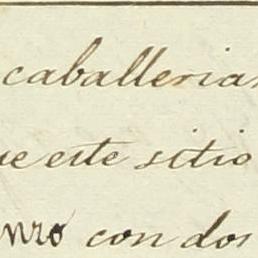 caballerias
ue este sitio
nro con dos